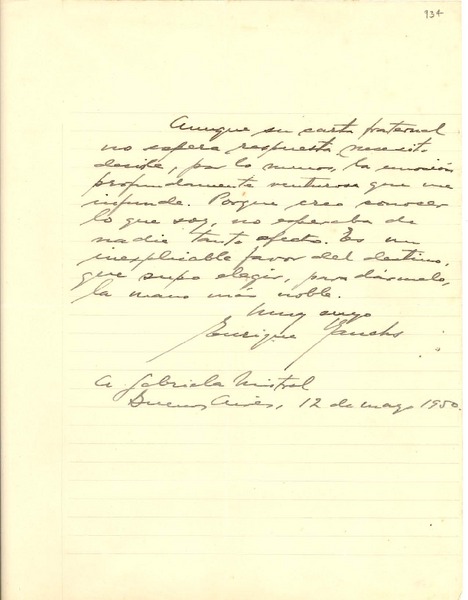 934
Aunque su carta fraternal
no espera respuesta, necesito
decirle, por lo menos, la emoción
profundamente venturosa que me
infunde. Porque creo conocer
lo que soy, no esperaba de
nadie tanto afecto. Es un
inexplicable favor del destino,
que supo elegir, para dármelo,
la mano más noble.
Muy suyo
Enrique
A Gabriela Mistral
Buenos Aires, 12 de mayo 1950.